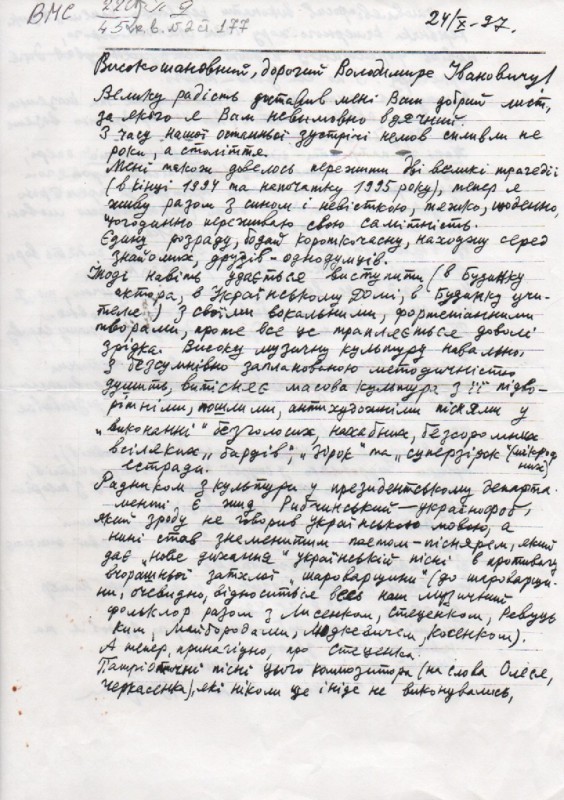 ВМС
24/X-97.
Високошановний, дорогий Володимире Івановичу!
Велику радість доставив мені Ваш добрий лист,
за якого я Вам невимовно вдячний.
З часу нашої останньої зустрічі немов сплили не
роки, а століття.
Мені також довелось пережити дві великі трагедії
(в кінці 1994 та напочатку 1995 року), тепер я
живу разом з сином і невісткою, тяжко, щоденно,
щогодинно переживаю свою самітність.
Єдину розраду, бодай короткочасну, находжу серед
знайомих, друзів-однодумців.
Іноді навіть вдається виступити (в Будинку
актора, в Українському Домі, в Будинку учи-
теля) з своїми вокальними, фортепіанними
творами, проте все це трапляється доволі
зрідка. Високу музичну культуру навально,
з безсумнівно запланованою методичністю
душить, витісняє масова культура з її підво-
рітніми, пошлими, антихудожніми піснями у
„виконанні" безголосих, нахабних, безсоромних
всіляких „бардів", „зірок" та „суперзірок"
естради.
Радником з культури у президентському департа-
менті є жид Рибчинський - українофоб,
який зроду не говорив українською мовою, а
нині став знаменитим поетом-піснярем, який
дає „нове дихання" українській пісні в противагу
вчорашньої затхлої „шароварщини" (до шароварщи-
ни, очевидно, відноситься весь наш музичний
фольклор разом з Лисенком, Стеценком, Ревуць
ким, Майбородами, Людкевичем, Косенком).
А тепер, принагідно, про Стеценка.
Патріотичні пісні цього композитора (на слова Олеся,
Черкасенка), які ніколи ще і ніде не виконувались,